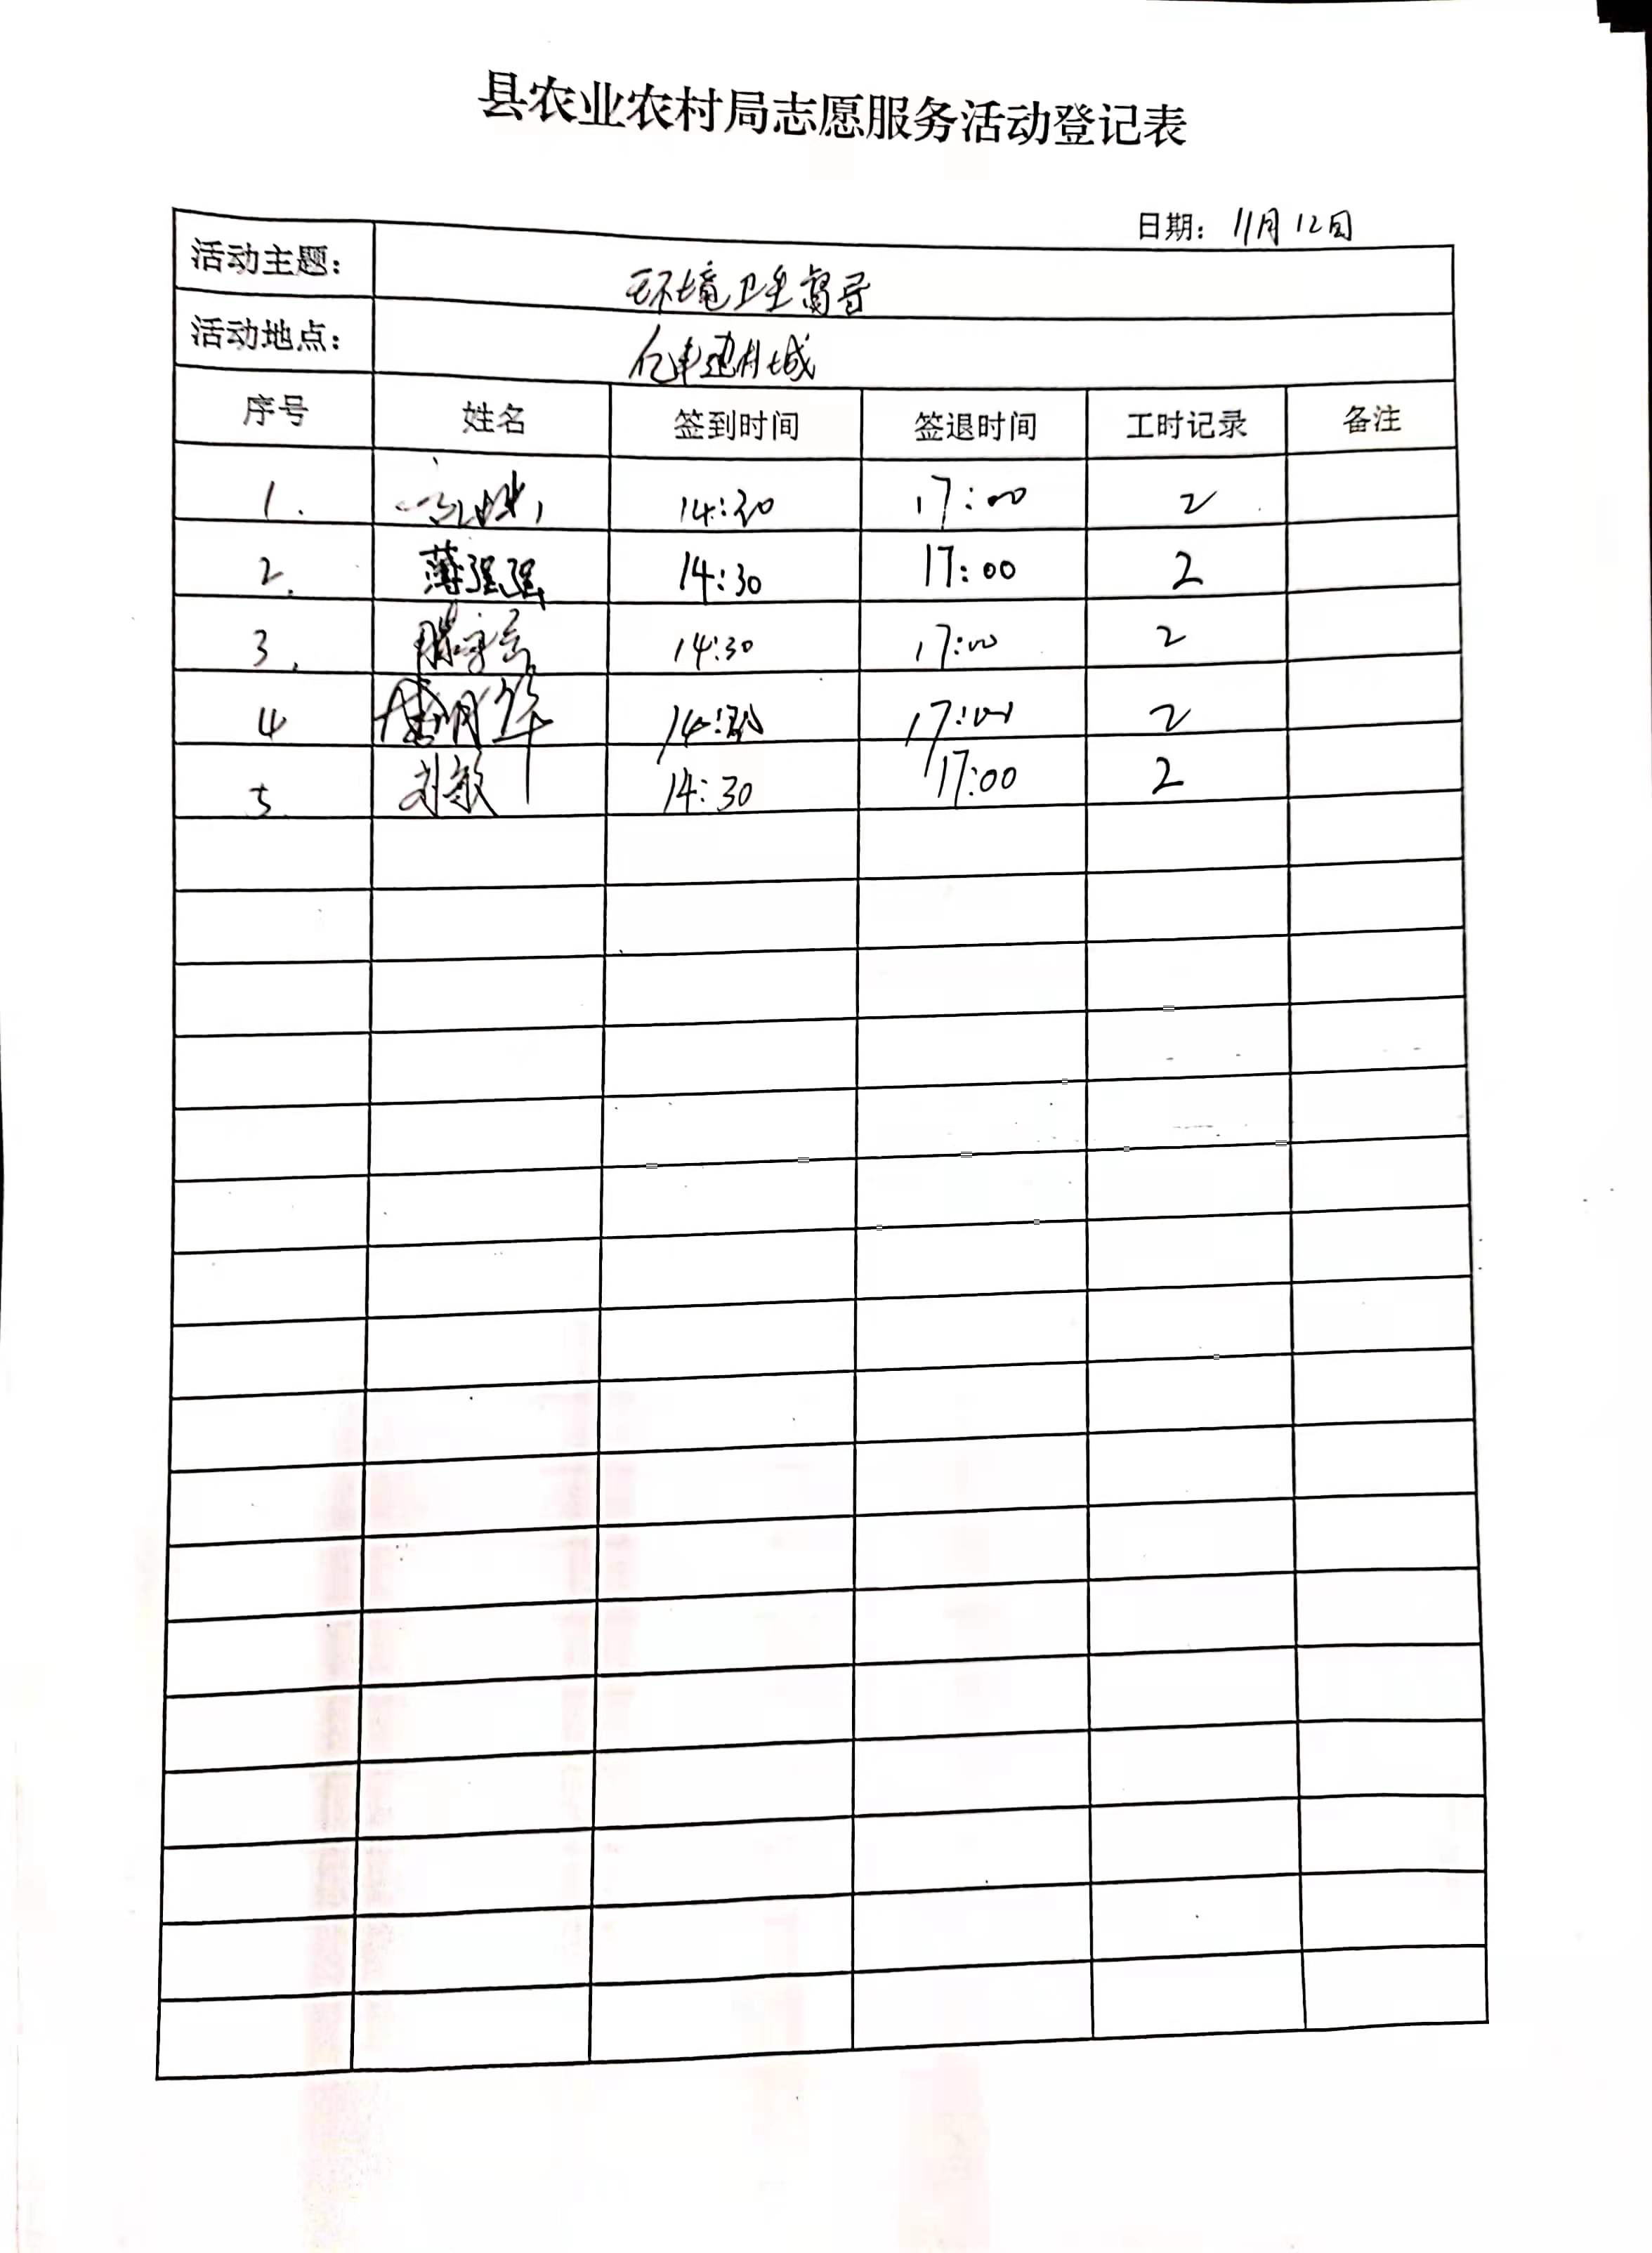 县农业农村局志愿服务活动登记表
日期: 11月12日
活动主题: 环境卫生督导
活动地点: 亿丰建材城
序号 姓名 签到时间 签退时间 工时记录 备注
1. 14:30 17:00 2
2. 薄强强 14:30 17:00 2
3. 14:30 17:00 2
4 14:30 17:00 2
5. 刘敏 14:30 17:00 2